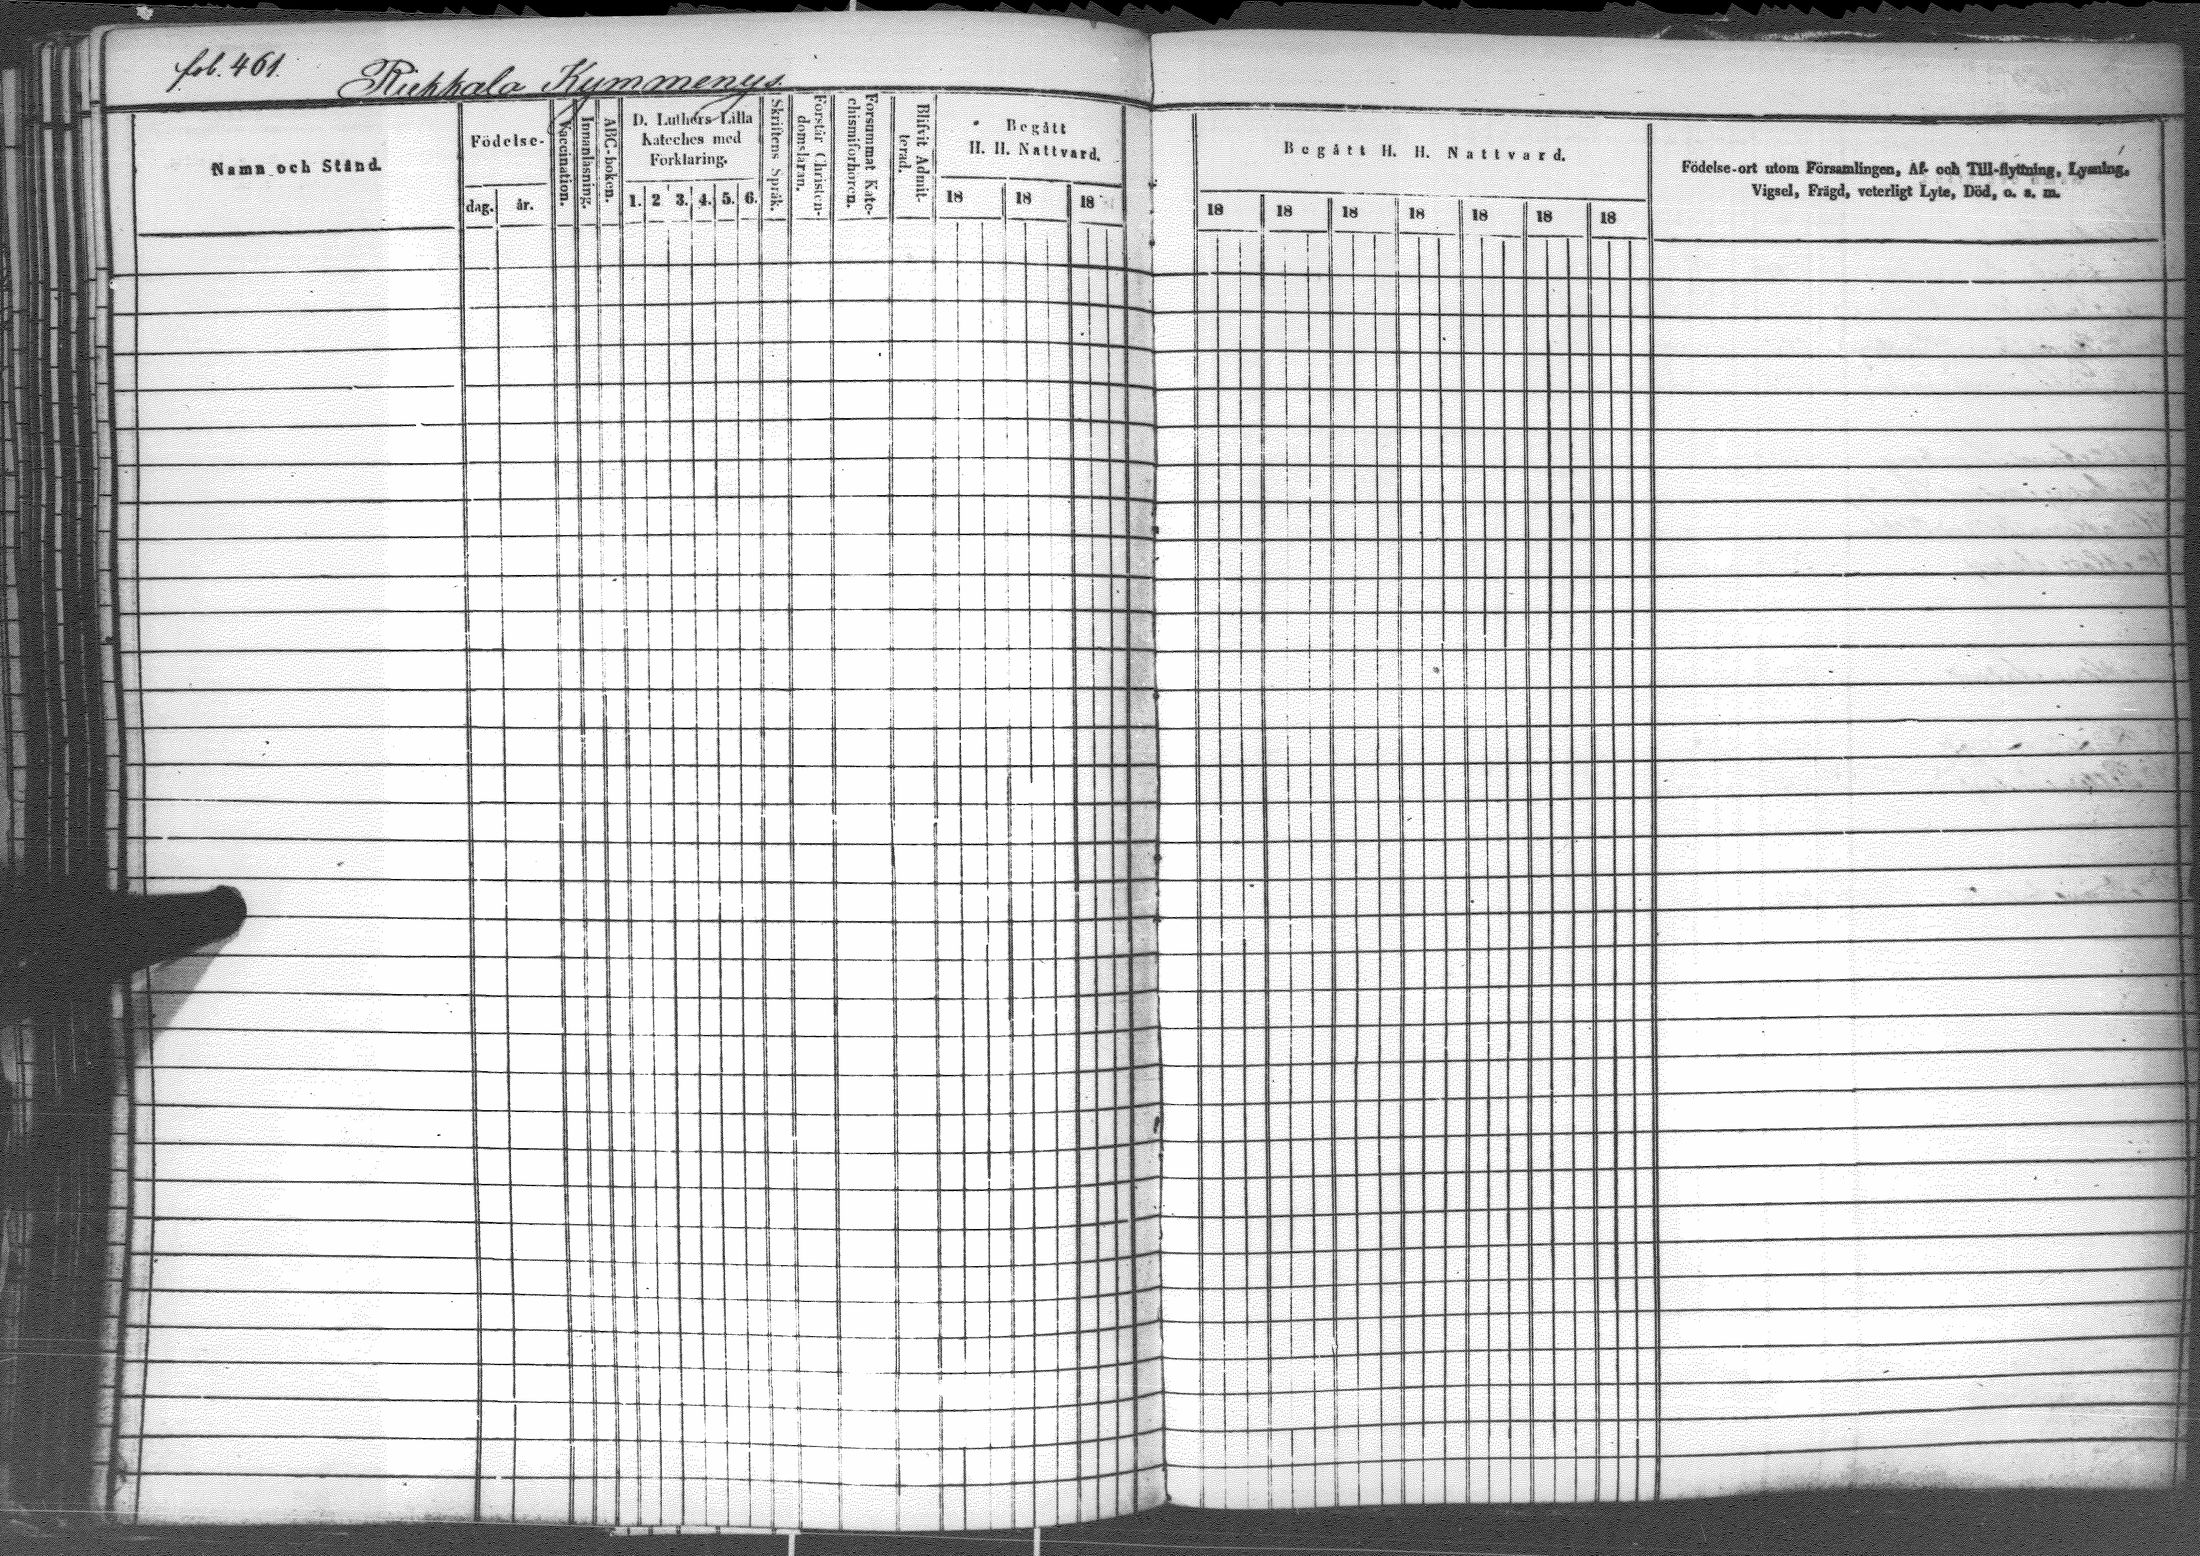 fol. 461. Riekkala Kymmenys
Namn och Stånd.
Födelse-
dag. år.
Vaccination.
Innanläsning.
ABC-boken.
D. Luthers Lilla
Kateches med
Förklaring.
1. 2 3. 4. 5. 6.
Skriftens Språk.
Förstår Christen-
domsläran.
Försummat Kate-
chismiförhören.
Blifvit Admit-
terad.
Begått
H. H. Nattvard.
18 18 18
Begått H. H. Nattvard.
18 18 18 18 18 18 18
Födelse-ort utom Församlingen, Af- och Till-flyttning, Lysning,
Vigsel, Frägd, veterligt Lyte, Död, o. s. m.